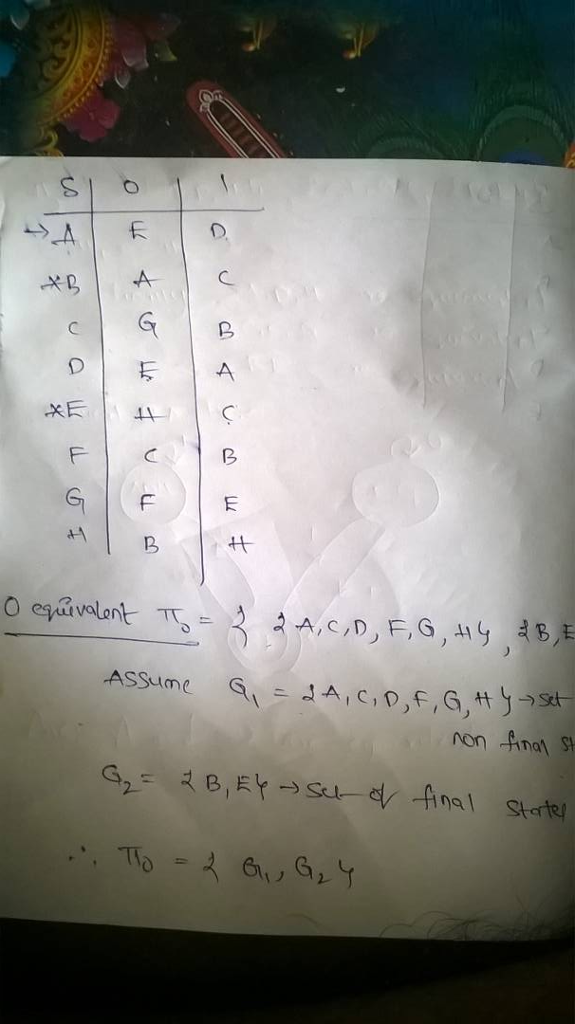 S 0 1
→A E D
*B A C
C G B
D E A
*E H C
F C B
G F E
H B H
0 equivalent π₀ = { {A, C, D, F, G, H}, {B, E
Assume G₁ = {A, C, D, F, G, H} → set
non final st
G₂ = {B, E} → set of final states
∴ π₀ = { G₁, G₂ }